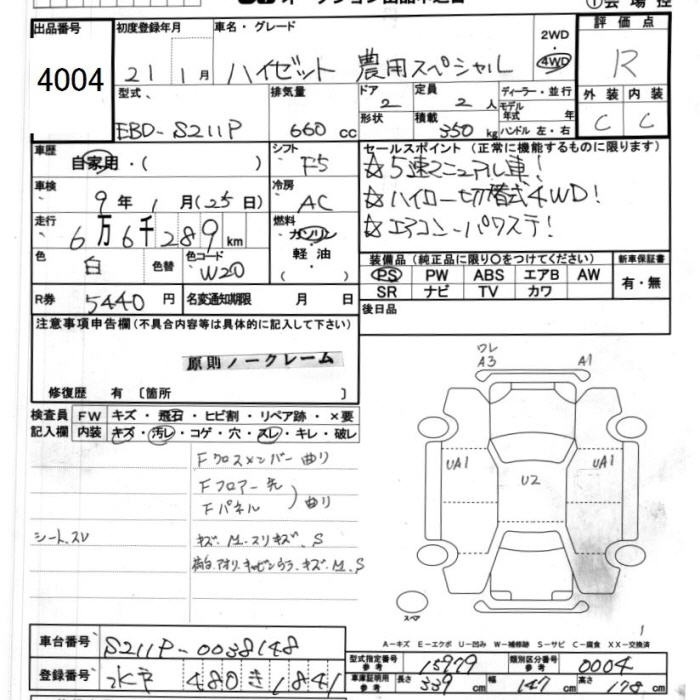 出品番号 初度登録年月 車名・グレード 2WD 評価点
4004 21年1月 ハイゼット 農用スペシャル 4WD R
型式 排気量 ドア 2 定員 2人 ディーラー・並行 外装 内装
EBD-S211P 660cc 形状 積載 350kg モデル年式 年 ハンドル 左・右 C C
車歴 自家用・( ) シフト F5 セールスポイント(正常に機能するものに限ります)
☆5速マニュアル車!
車検 9年1月(25日) 冷房 AC ☆ハイロー切替式4WD!
走行 6万6千289km 燃料 ガソリン 軽油 ( ) ☆エアコン・パワステ!
色 白 色替 色コード W20 装備品(純正品に限り○をつけてください) 新車保証書
PS PW ABS エアB AW 有・無
SR ナビ TV カワ
R券 5440円 名変通知期限 月 日 後日品
注意事項申告欄(不具合内容等は具体的に記入して下さい)
原則ノークレーム
修復歴 有〔箇所 〕
ワレ
A3 A1
検査員 FW キズ・飛石・ヒビ割・リペア跡・×要
記入欄 内装 キズ・汚レ・コゲ・穴・スレ・キレ・破レ
Fクロスメンバー曲り
UA1 U2 UA1
Fフロアー先
Fパネル 曲り
シート、スレ キズ、M、スリキズ、S
荷台、アオリ、キャビンウラ、キズ、M、S
スペア
1
A-キズ E-エクボ U-凹み W-補修跡 S-サビ C-腐食 XX-交換済
車台番号 S211P-0038148
型式指定番号 参考 15979 類別区分番号 参考 0004
登録番号 水戸 480 き 1841 車庫証明用 参考 長さ 339cm 幅 147cm 高さ 178cm